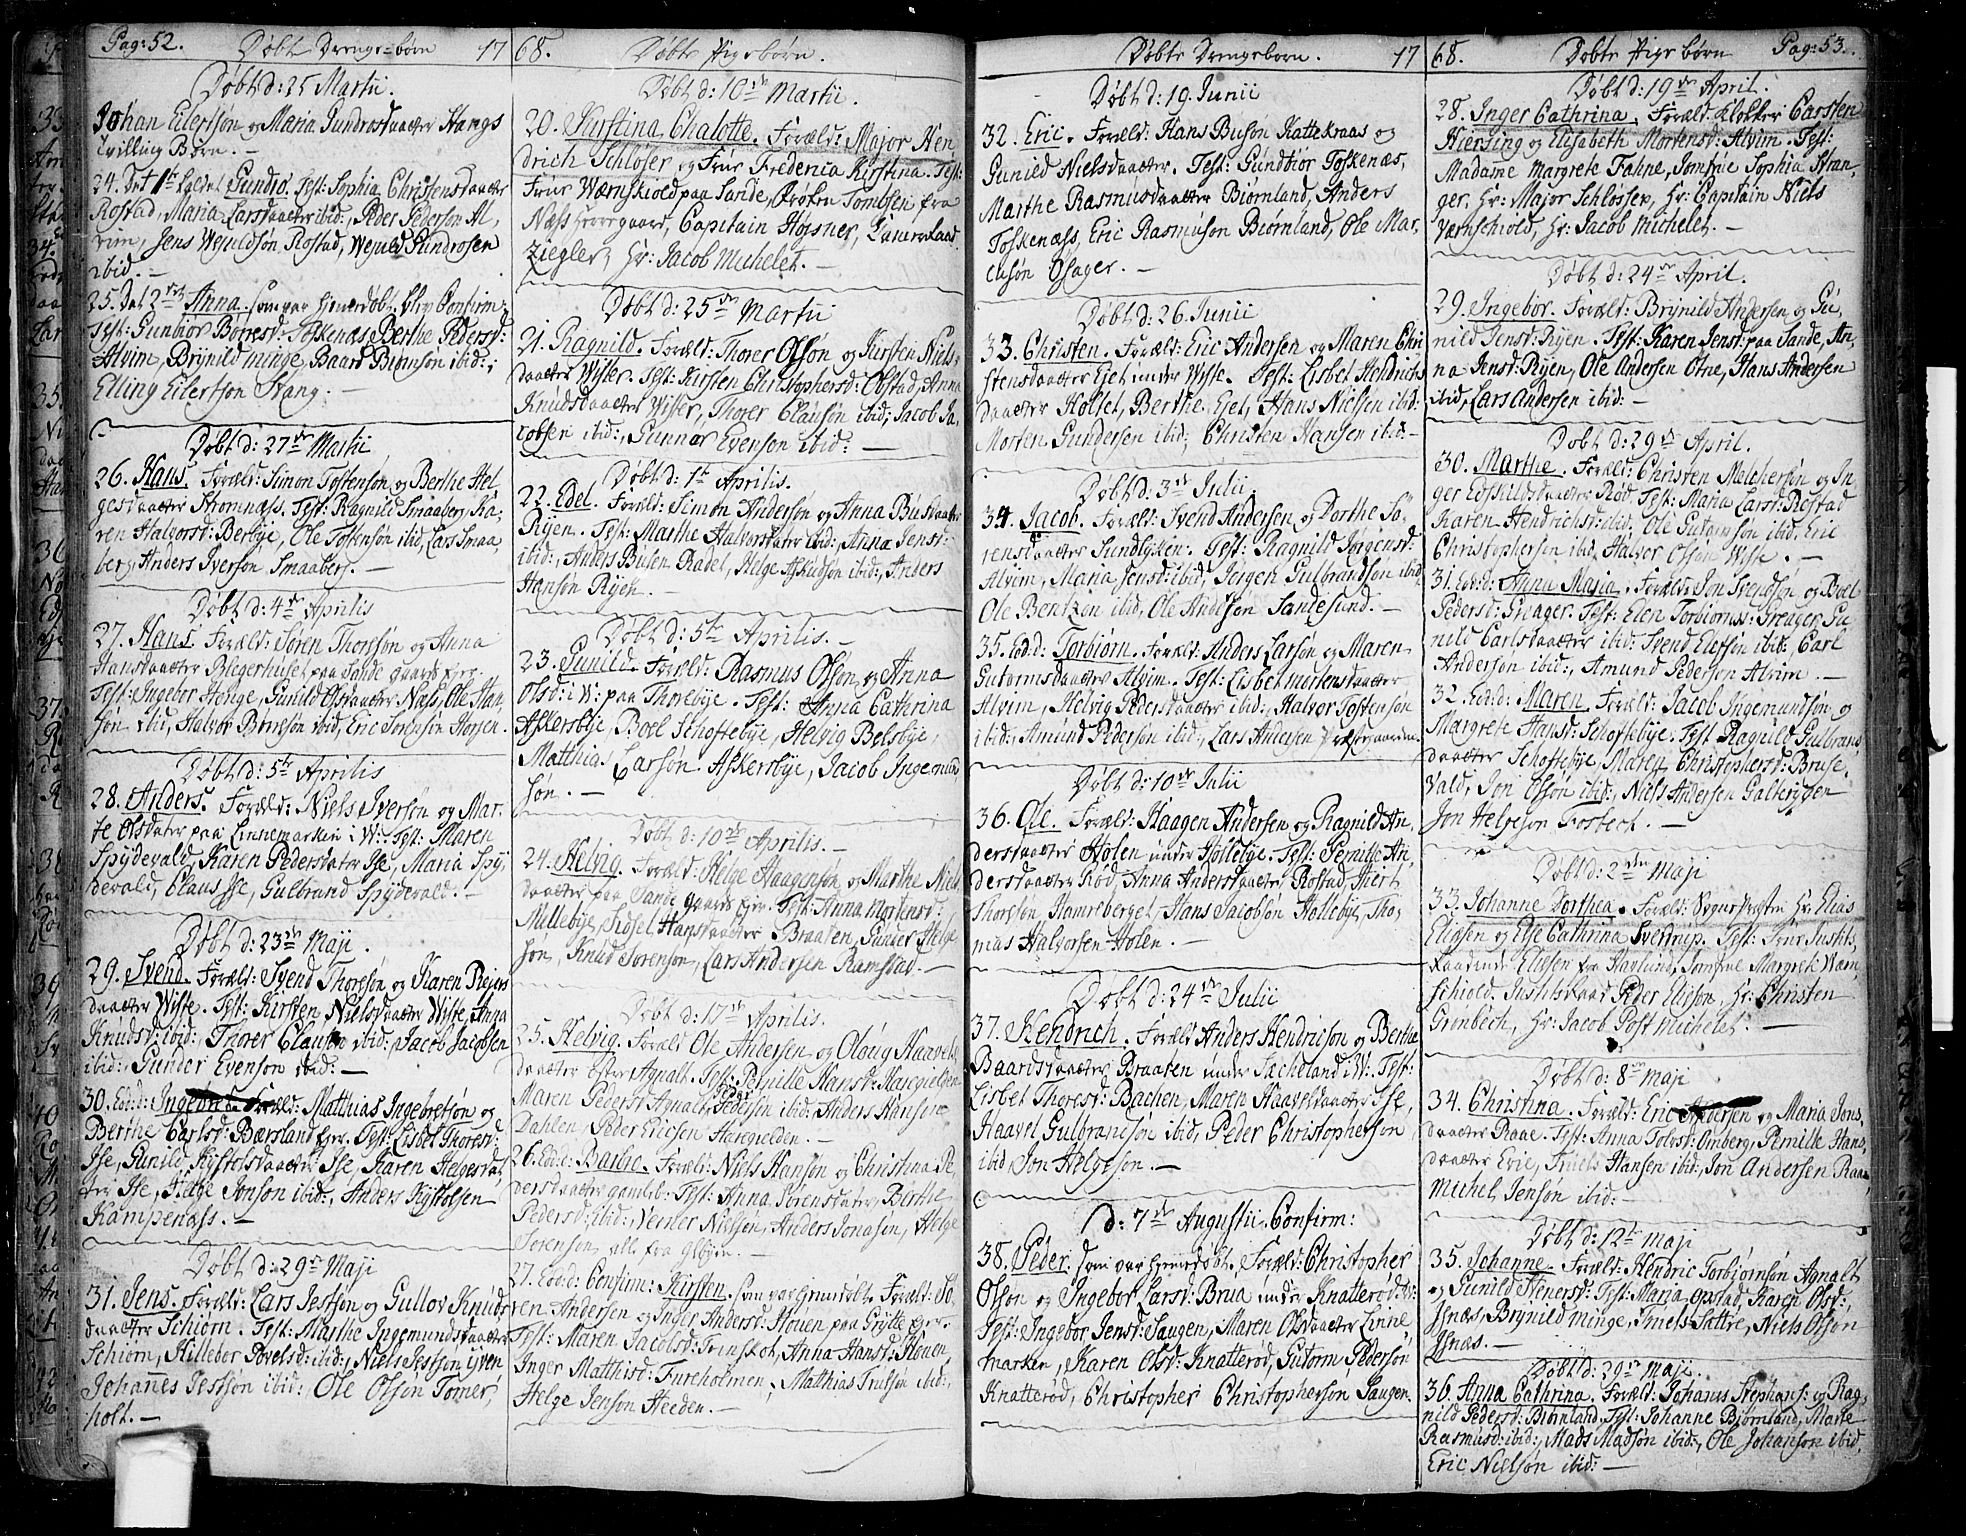 Pag: 52. Døbt Drenge-børn 17
Døbt d: 25 Martii.
Johan Eilertsøn og Maria Gundrosdaatter Hangs
tvilling Børn. –
24. Det 1te kaldet Gundro. Test: Sophia Christensdaatter
Rostad, Maria Larsdaatter ibid: Peder Pederson Al,
vim, Jens Weruldsøn Rostad, Weruld Gundrosen
ibid. –
25. Det 2det Anna. som var hjemedøbt blev Confirm:
Test: Gunbiør Børresd: Toskenæs Berthe Pedersd:
Alvim, Brynild minge, Baard Biørnson ibid:,
Elling Eilertson Hang. –
Døbt d: 27de Martii
26. Hans. Foræld: Simon Tostenson og Berthe Hel,
gesdaatter Strømnæss. Test: Ragnild Smaaberg, Ka,
ren Halvorsd: Berbye, Ole Tostenson ibid, Lars Smaa,
berg, Anders Iverson Smaaberg. –
Døbt d: 4de Aprilis
27. Hans. Foræld: Søren Thoresøn og Anna
Hansdaatter Blegerhuset paa Sande gaards ejer.
Test: Ingebor Henge, Gunild Olsdaatter Næss, Ole Han,
søn ibid, Halvor Børgeson ibid, Eric Sørenson Horsen.
Døbt d: 5te Aprilis
28. Anders. Foræld: Niels Iversøn og Mar,
te Olsdater paa Linnemarken i W: Test: Maren
Spydevald, Karen Pedersdater Ise, Maria Spy,
devald, Claus Ise, Gulbrand Spydevald. –
Døbt d: 23de Maji.
29. Svend. Foræld: Svend Thoresøn og Karen Reiers
daatter Wiste. Test: Kirsten Nielsdaatter Wiste, Anna
Knudsd: ibid: Thorer Clausøn ibid: Jacob Jacobsen
ibid: Gunder Evenson ibid: –
30. Eod: d: Ingebret. Foræld: Matthias Ingebretsøn og
Berthe Carlsd: Bærsland ejer. Test: Lisbet Thoresd:
Ise, Gunild Kistolsdaatter Ise, Karen Helgesdat,
ter Ise, Helge Jonson ibid:, Anders Kystolsen
Kampenæss. –
Døbt d: 29de Maji
31. Jens. Foræld: Lars Jestsøn og Gullov Knuds
daatter Schiørn. Test: Marthe Ingemundsdaatter
Schiørn, Hilleber Povelsd: ibid:, Niels Jestson Yven
Johannes Jestsøn ibid: Ole Olsøn Tomer,
holt. –
68. Døbte Pigebørn.
Døbt d: 10de Martii.
20. Kirstina Chalotte. Foræld: Major Hen
drich Schløser og Frue Frederica Kirstina. Test:
Frue Wærnskiold paa Sande, Frøken Tomlsen fra
Næss herregaard, Capitain Høisner,
Ziegler, Hr: Jacob Michelet. –
Døbt d: 25de Martii
21. Ragnild. Foræld: Thorer Olsøn og Kirsten Niels,
daatter Wister. Test: Kirsten Christophersd: Obstad, Anna
Knudsdaatter Wister, Thorer Clausøn ibid: Jacob Ja,
cobsen ibid:, Gunnar Evenson ibid: –
Døbt d: 1te Aprilis.
22. Edel. Foræld: Simon Andersøn og Anna Buesdaatter
Ryen. Test: Marthe Halvorsdater ibid:, Anna Jensd:
ibid:, Anders Buesen Radet, Helge Askudsøn ibid:, Anders
Hansøn Ryen. –
Døbt d: 5te Aprilis. –
23. Gunild. Foræld: Rasmus Olsøn og Anna
Olsd: i W: paa Thorebye. Test: Anna Cathrina
Askersbye, Boel Schøftebye, Helvig Belsbye,
Matthias Larsøn Askersbye, Jacob Ingemund
søn. –
Døbt d: 10de Aprilis. –
24. Helvig. Foræld: Helge Haagensøn og Marthe Niels
daatter paa Sande gaards ejer. Test: Anna Mortensd:
Nillebye, Sidsel Hansdaatter Braaten, Gunder Helge
søn, Knud Sørenson, Lars Andersen Ramstad. –
Døbt d: 17de Aprilis.
25. Helvig. Foræld: Ole Andersen og Oloug Haavels
daatter Estre Agnalt. Test: Pernille Hansd: Haregielten
Maren Pedersd: Agnalt, Pedersen ibid: Anders Hansen
Dahlen, Peder Ericsen Haregielden. –
26. Eod: d: Barbro. Foræld: Niels Hansøn og Christina Pe,
dersdaatter gamleb: Test: Anna Sørensdater, Berthe
Pedersd: ibid:, Verner Nielsen, Anders Jonasen, Helge
Sørensøn, alle fra Glbyen. –
27. Eod: d: Confirm: Kirsten, som var hjemdøbt. Foræld: Sø,
ren Andersen og Inger Andersd: Houen paa Grytte ejer.
Test: Maren Jacobsd: Trinskot, Anna Hansd: Houen
Inger Matthisd: Fureholmen, Matthias Truelsøn ibid:,
Helge Jenson Heeden. –
Døbte Drengebørn. 17
Døbt d: 19. Junii
32. Eric. Foræld: Hans Busøn Kattekraas og
Gunild Nielsdaatter. Test: Gundbiør Toskenæs,
Marthe Rasmusdaatter Biørnland, Anders
Toskenæss, Eric Rasmusøn Biørnland, Ole Mar,
cusøn Osager. –
Døbt d: 26. Junii
33. Christen. Foræld: Eric Andersen og Maren Chri
stensdaatter Ejet under Wiste. Test: Lisbet Hendrichs
daatter Holset, Berthe Ejet, Hans Nielsen ibid:
Morten Gundersen ibid:, Christen Hansen ibid: –
Døbt d: 3de Julii
34. Jacob. Foræld: Svend Andersen og Dorthe Sø,
rensdaatter Sundlykken. Test: Ragnild Jørgensd:
Alvim, Maria Jensd: ibid, Jørgen Gulbrandsøn ibid,
Ole Bentzen ibid, Ole Andersøn Sandesund. –
35. Eod: d: Torbiørn. Foræld: Anders Larsøn og Maren
Gutormsdaatter Alvim. Test: Lisbet Mortensdaatter
Alvim, Helvig Pedersdaatter ibid:, Halvor Tostensøn
ibid:, Amund Pederson ibid:, Lars Andersen Præstegaarden.
Døbt d: 10de Julii
36. Ole. Foræld: Haagen Andersen og Ragnild An,
dersdaatter Holen under Hollebye. Test: Pernille An,
dersdaatter Rød, Anna Andersdaatter Rostad, Hiert
Thoresøn, Hamreberget, Hans Jacobsøn Hollebye, Tho,
mas Halvorsen Holen. –
Døbt d: 24de Julii
37. Hendrich. Foræld: Anders Hendricsøn og Berthe
Baardsdaatter Braaten under Sacheland i W: Test:
Lisbet Thoresd: Bachen, Maren Haavelsdaatter Ise,
Haavel Gulbrandsøn ibid, Peder Christopherson
ibid, Jon Helgeson. –
d: 7de Augustii Confirm:
38. Peder, som var hjemedøbt. Foræld: Christopher
Olsøn og Ingebor Larsd: Brua under Knatterød i W:
Test: Ingebor Jensd: Haugen, Maren Olsdaatter Linne,
marken, Karen Olsd: Knatterød, Gutorm Pedersøn
Knatterød, Christopher Christophersøn Haugen.
68. Døbte Pige børn Pag: 53.
Døbt d: 19de April.
28. Inger Cathrina. Foræld: Klokker Carsten
Hiersing og Elisabeth Mortensd: Alvim. Test:
Madame Margrete Fahne, Jomfrue Sophia Stan,
ger, Hr: Major Schløsser, Hr: Capitain Niels
Værnschiold, Hr: Jacob Michelet. –
Døbt d: 24de April.
29. Ingebor. Foræld: Brynild Andersen og Gu,
nild Jensd: Ryen. Test: Karen Jensd: paa Sande, An,
na Jensd: Ryen, Ole Andersen Otne, Hans Andersen
ibid, Lars Andersen ibid: –
Døbt d: 29de April.
30. Marthe. Foræld: Christen Melchersøn og In,
ger Edskildsdaatter Rød. Test: Maria Larsd: Rostad
Karen Hendrichsd: ibid, Ole Gutormsøn ibid, Eric
Christophersen ibid, Halvor Olsøn Wiste. –
31. Eod: d: Anna Maria. Foræld: Jon Svendsøn og Boel
Pedersd: Greager. Test: Elen Torbiørnsd: Greager, Gu,
nild Carlsdaatter ibid: Svend Elefsøn ibid:, Carl
Andersøn ibid:, Amund Pedersen Alvim. –
32. Eod: d: Maren. Foræld: Jacob Ingemundsøn og
Margrete Hansd: Schoftebye. Test: Ragnild Gulbrans
daatter Schoftebye, Maren Christophersd: Bruse,
vald, Jon Olsøn ibid:, Niels Andersen Galterygen
Jon Helgeson Fosbech. –
Døbt d: 2den Maji
33. Johanne Dorthea. Foræld: Sognepræsten Hr: Elias
Eliesen og Else Cathrina Sverdrup. Test: Frue Justits,
Raadinde Eliesen fra Hafslund, Jomfrue Margrete Wærn
schiold. Justitsraad Peder Elieson, Hr: Christen
Grønbech, Hr: Jacob Post Michelet. –
Døbt d: 8de Maji
34. Christina. Foræld: Eric Andersen og Maria Jons,
daatter Raae. Test: Anna Tolvsd: Omberg, Pernille Hans,
daatter Evie, Truels Hansen ibid:, Jon Andersen Raae,
Michel Jensøn ibid: –
Døbt d: 12te Maji
35. Johanne. Foræld: Hendric Torbiørnsøn Agnalt
og Gunild Stenersd: Test: Maria Opstad, Karen Olsd:,
Isnæs, Brynild Minge, Truels Sættre, Niels Olsøn
Isnæs. –
Døbt d: 29de Maji.
36. Anna Cathrina. Foræld: Johans Stephans: og Rag,
nild Pedersd: Biørnland. Test: Johanne Biørnland, Marte
Rasmusd: ibid:, Mads Madsøn ibid:, Ole Johanson ibid,
Eric Nielsøn ibid: –